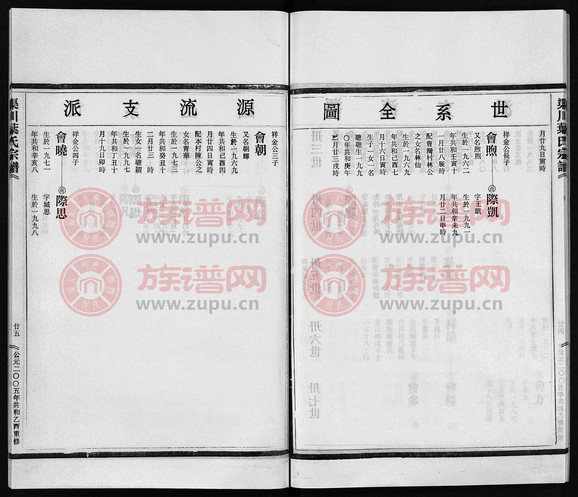 世系全圖
月廿九日寅時
祥金公長子
會煦
又名煦煦
生於一九六二
年共和壬寅十
一月廿八辰時
配曹灣村林公
之女名林仙
生於一九六九
年共和己酉七
月十六日寅時
生子一女一名
聰聰生一九九
〇年共和庚午
二月廿三戌時
際凱
字王凱
生於一九九一
年共和辛未九
月廿二日申時
源流支派
祥金公三子
會朝
又名朝輝
生於一九六九
年共和己酉四
月廿四日時
配本村陳公之
女名青華
生於一九七三
年共和癸丑十
二月廿三時
生女一名璐璐
生於一九九七
年共和丁丑十
祥金公四子
會曉
生於一九七一
年共和辛亥八
際思
字城思
生於一九九八
渠川葉氏宗譜
廿五
公元二〇〇五年共和乙酉重修
渠川葉氏宗譜
卅三世
卅四世
卅五世
卅六世
卅七世
族谱网
www.zupu.cn
族谱网
www.zupu.cn
族谱网
www.zupu.cn
族谱网
www.zupu.cn